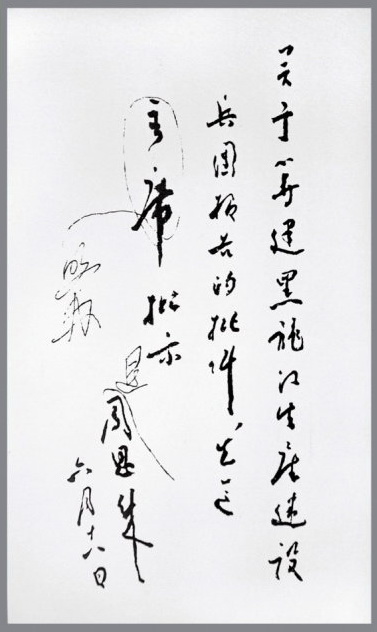 关于筹建黑龙江生产建设
兵团报告的批件，先送
主席批示
周恩来
六月十八日
照办